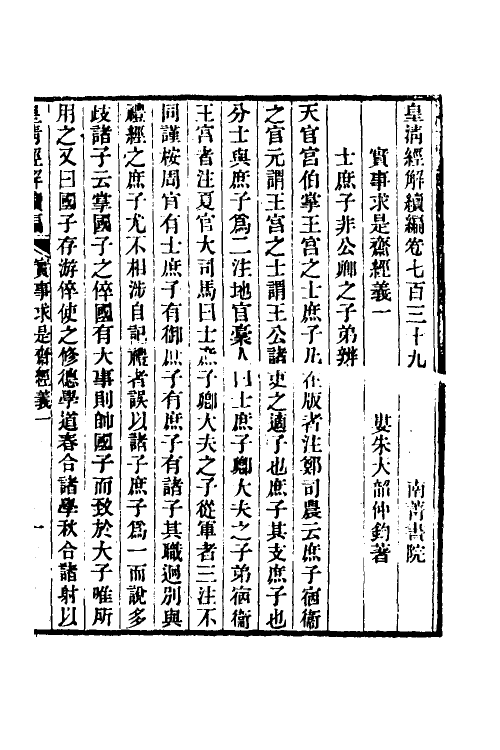 皇淸經解續編卷七百三十九 南菁書院
實事求是齋經義一 婁朱大韶仲鈞著
士庶子非公卿之子弟辨
天官宮伯掌王宮之士庶子凡在版者注鄭司農云庶子宿衞
之官元謂王宮之士謂王公諸吏之適子也庶子其支庶子也
分士與庶子爲二注地官槀人曰士庶子卿大夫之子弟宿衞
王宮者注夏官大司馬曰士庶子卿大夫之子從軍者三注不
同謹桉周官有士庶子有御庶子有庶子有諸子其職迥別與
禮經之庶子尤不相涉自記禮者誤以諸子庶子爲一而說多
歧諸子云掌國子之倅國有大事則帥國子而致於大子唯所
用之又曰國子存游倅使之修德學道春合諸學秋合諸射以
皇淸經解續編 實事求是齋經義一 一